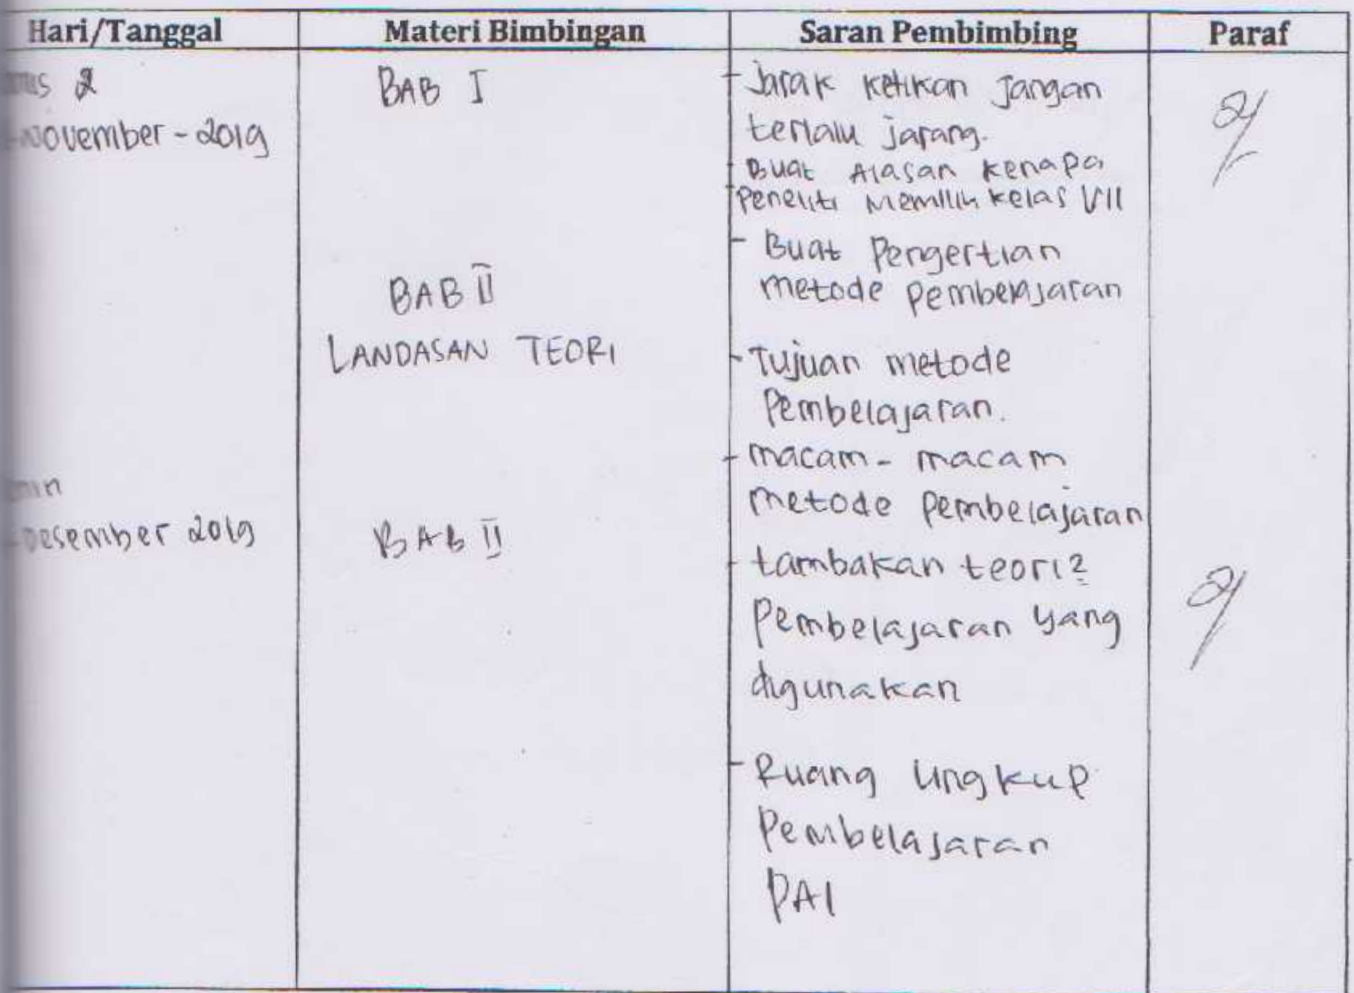 Hari/Tanggal Materi Bimbingan Saran Pembimbing Paraf
2
November - 2019
BAB I
- Jarak ketikan jangan
terlalu jarang.
- Buat Alasan kenapa
Peneliti Memilih kelas VII
BAB II
LANDASAN TEORI
- Buat Pengertian
metode pembelajaran
- Tujuan metode
Pembelajaran.
- macam - macam
metode pembelajaran
Desember 2019
BAB II
- tambakan teori2
Pembelajaran yang
digunakan
- Ruang Lingkup
Pembelajaran
PAI